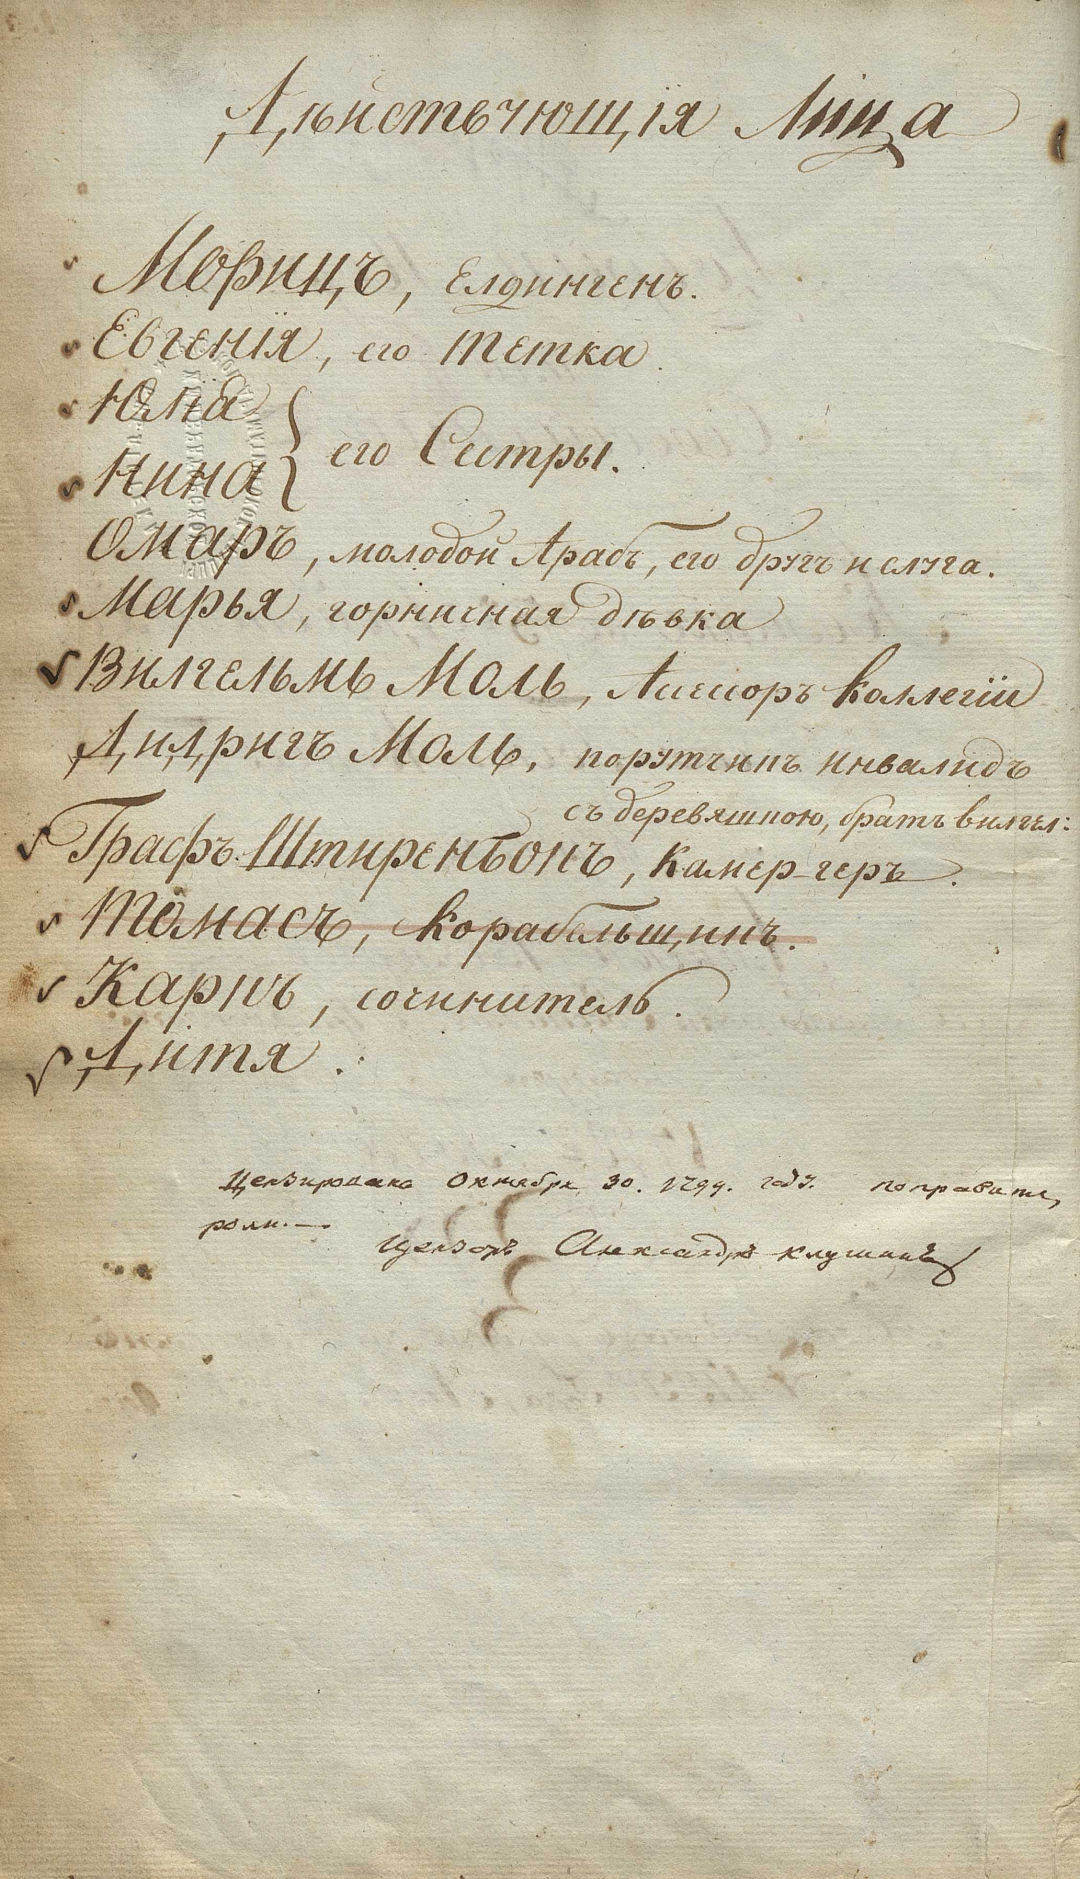 Дѣйствующія Лица
Морицъ, Елдингенъ.
Евгенія, его Тетка.
Юлiа
Нина } его Сестры.
Омаръ, молодой Арабъ, его другъ и слуга.
Марья, горничная дѣвка
Вилгельмъ Моль, Ассесоръ Коллегіи
Дидригъ Моль, порутчикъ инвалидъ
съ деревяшкою, братъ вилгел:
Графъ Штиреньбокъ, Камер-геръ.
Томасъ, корабельщикъ.
Карпъ, сочинитель.
Дитя.
Цензировано Октября 30. 1799. году. поправить
роли.—
Цензоръ Александръ Клушинъ